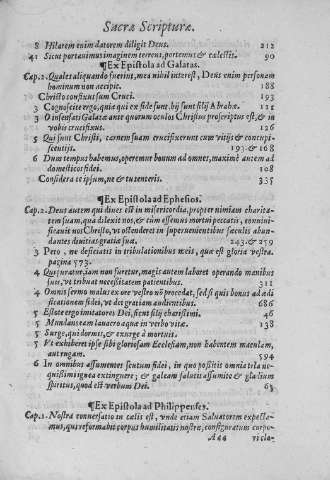 Sacræ Scripturæ.
8 Hilarem enim datorem diligit Deus. 212
41 Sicut portauimus imaginem terreni, portemus & cælestis. 90
¶Ex Epistola ad Galatas.
Cap.2. Quales aliquando fuerint, mea nihil interest, Deus enim personem
hominum non accipit. 188
Christo confixus sum Cruci. 193
3 Cognoscite ergo, quia qui ex fide sunt, hij sunt filij Abrahæ. 121
3 O insensati Galatæ ante quorum oculos Christus proscriptus est, & in
vobis crucifixus. 126
5 Qui sunt Christi, carnem suam crucifixerunt cum vitijs & concupi-
scentijs. 193 & 168
6 Dum tempus habemus, operemur bonum ad omnes, maximè autem ad
domesticos fidei. 108
Considera te ipsum, ne & tu tenteris. 335
¶Ex Epistola ad Ephesios.
Cap.2. Deus autem qui diues est in misericordia, propter nimiam charita-
tem suam, qua dilexit nos, & cùm essemus mortui peccatis, conuiui-
ficauit nos Christo, vt ostenderet in superuenientibus sæculis abun-
dantes diuitias gratiæ suæ. 243 & 259
3 Pero, ne deficiatis in tribulationibus meis, quæ est gloria vestra.
pagina 573.
4 Qui furatur, iam non furetur, magis autem laboret operando manibus
suis, vt tribuat necessitatem patientibus. 311
4 Omnis sermo malus ex ore vestro nō procedat, sed si quis bonus ad ædi
ficationem fidei, vt det gratiam audientibus. 686
5 Estote ergo imitatores Dei, sicut filij charissimi. 46
5 Mundans eam lauacro aquæ in verbo vitæ. 138
5 Surge, qui dormis, & exurge à mortuis.
5 Vt exhiberet ipse sibi gloriosam Ecclesiam, non habentem maculam,
aut rugam. 594
6 In omnibus assumentes scutum fidei, in quo possitis omnia tela ne-
quissimi ignea extinguere; & galeam salutis assumite & gladium
spiritus, quod est verbum Dei. 63
¶Ex Epistola ad Philippenses.
Cap.3. Nostra conuersatio in cælis est, vnde etiam Saluatorem expecta-
mus, qui reformabit corpus humilitatis nostræ, configuratum corpo-
Aaa